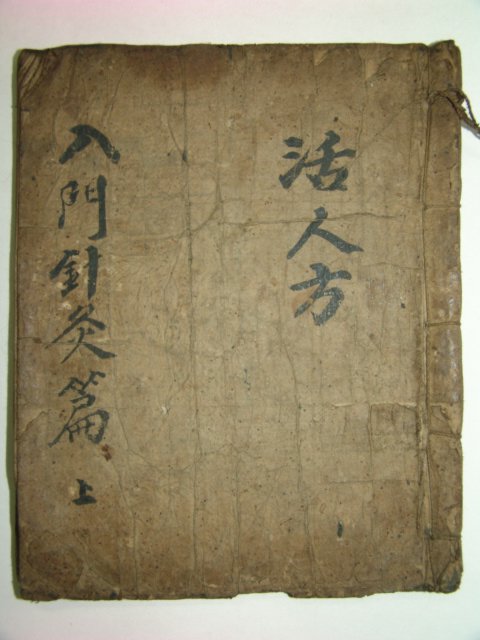 活人方
入門針灸篇 上